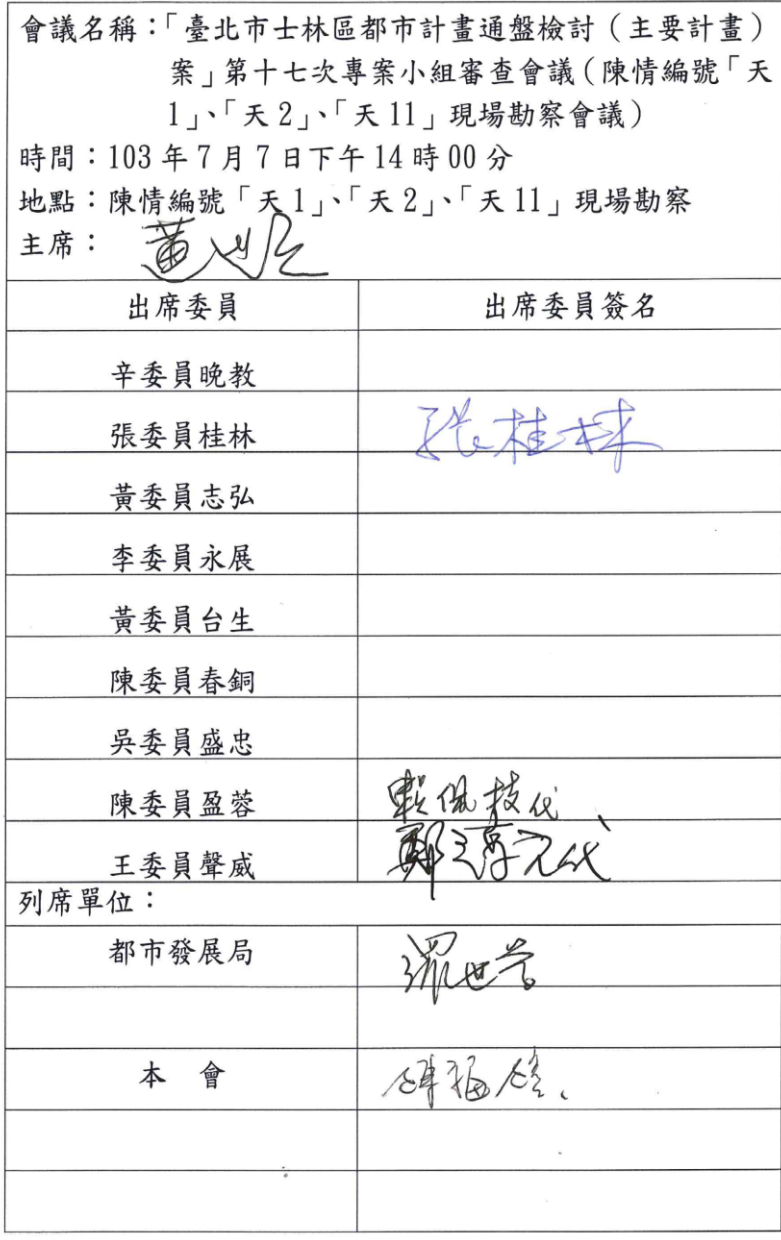 會議名稱：「臺北市士林區都市計畫通盤檢討（主要計畫）
案」第十七次專案小組審查會議（陳情編號「天
1」、「天 2」、「天 11」現場勘察會議）
時間：103 年 7 月 7 日下午 14 時 00 分
地點：陳情編號「天 1」、「天 2」、「天 11」現場勘察
主席：
出席委員 出席委員簽名
辛委員晚教
張委員桂林 張桂林
黃委員志弘
李委員永展
黃委員台生
陳委員春銅
吳委員盛忠
陳委員盈蓉 代
王委員聲威 代
列席單位：
都市發展局
本 會